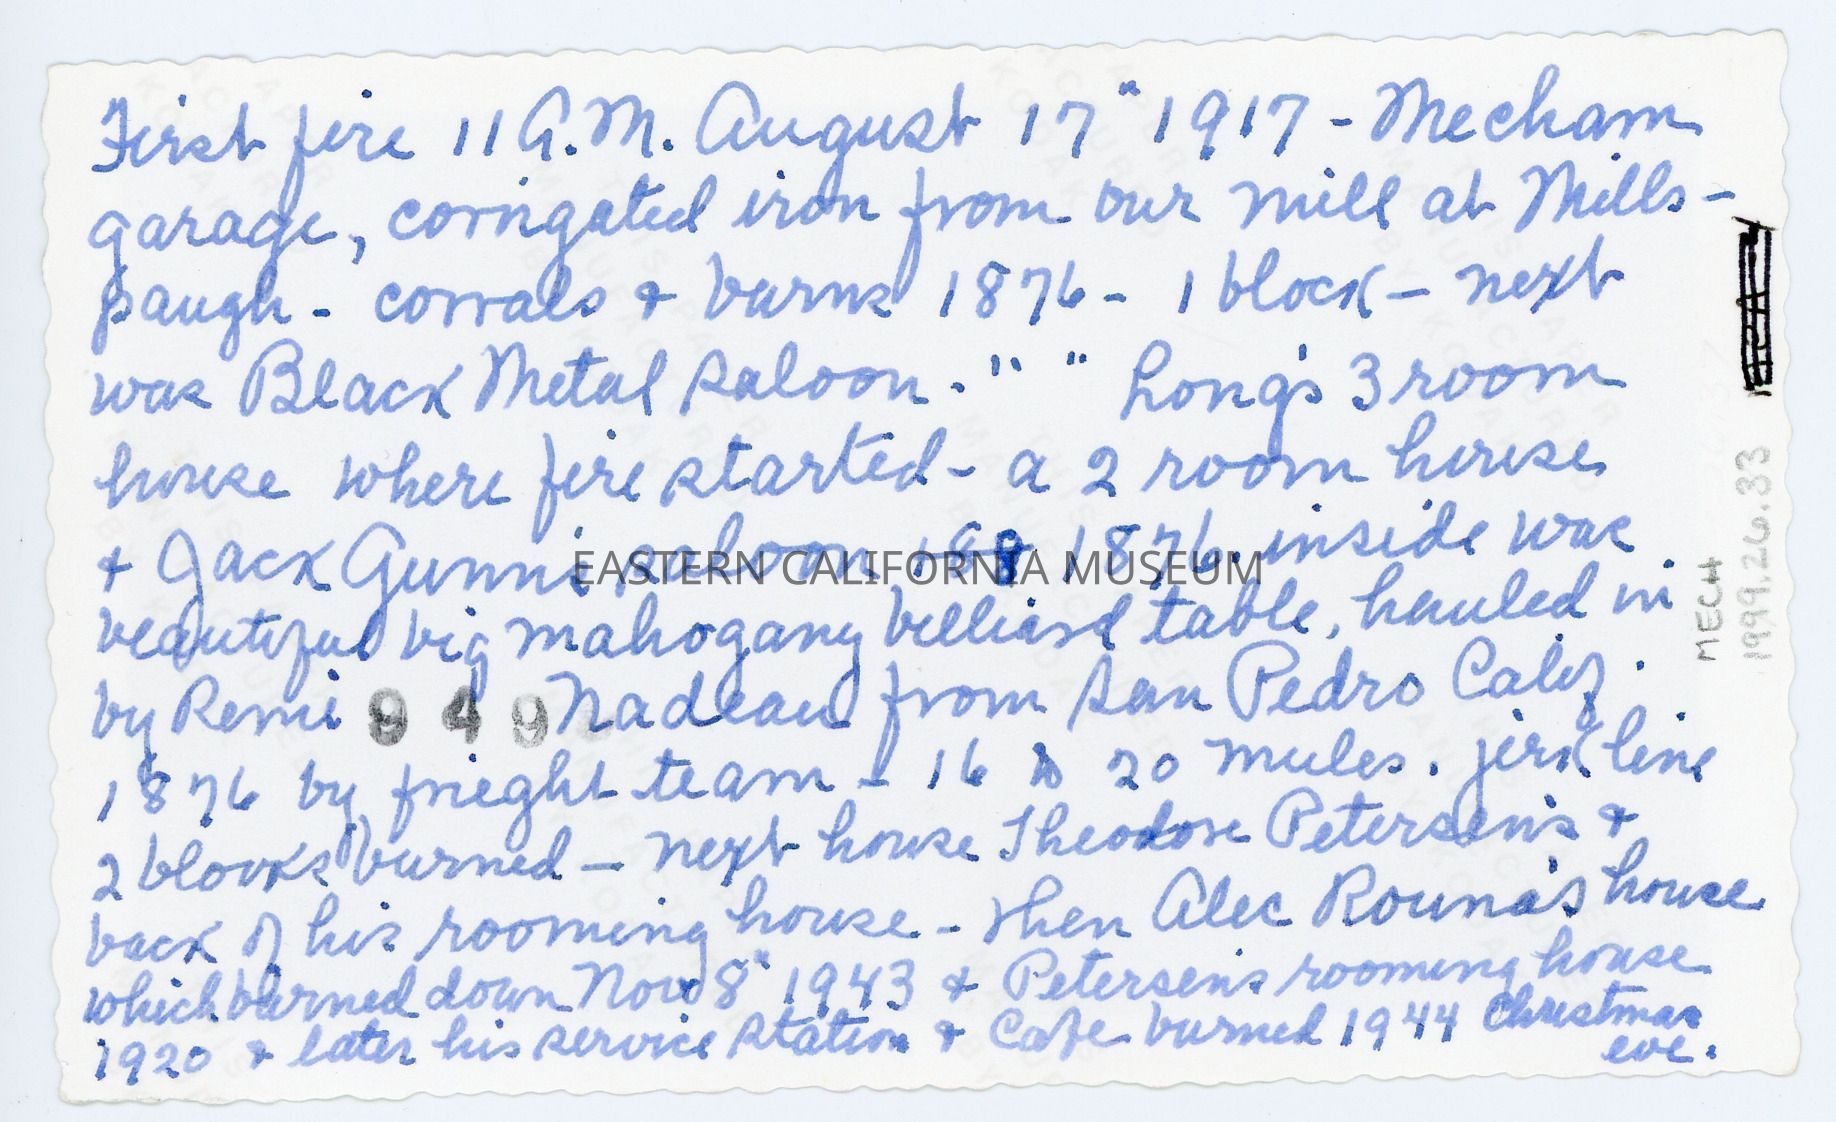 First fire 11 A.M. August 17" 1917 - Mecham
garage, corrigated iron from our mill at Mills-
paugh - corrals & barns 1876 - 1 block - next
was Black Metal saloon. " " Long's 3 room
house where fire started - a 2 room house
& Jack Gunn's saloon 1876. inside was
beautiful big mahogany billiard table, hauled in
by Remi Nadeau from San Pedro Calif.
949
1876 by frieght team - 16 to 20 mules. jerk line
2 blocks burned - next house Theodore Petersen's &
back of his rooming house - then Alec Rouna's house
which burned down Nov 8" 1943 & Petersen's rooming house
1920 & later his service station & Cafe burned 1944 Christmas
eve.
MECH
1999.26.33
EASTERN CALIFORNIA MUSEUM